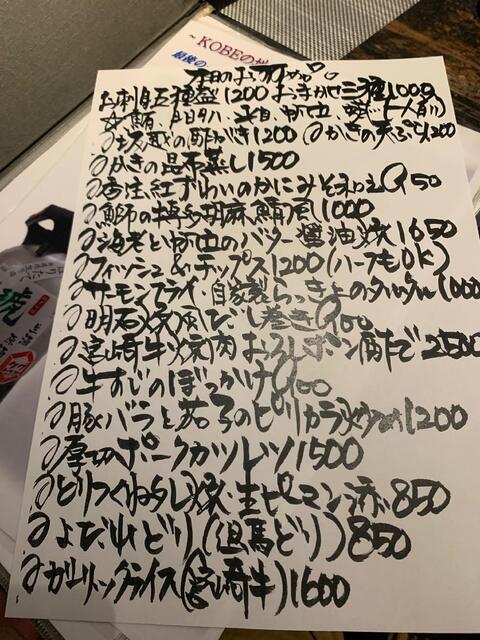 ~ KOBEの
最後の
本日のお刺身
お刺身五種盛1200 おまかせ三種1000
の酢がき1200 かきの天ぷら1200
かきの昆布蒸し1500
香住紅ずわいのかにみそ和え950
鰤の博多胡麻鯖風1000
海老と帆立のバター醤油焼1650
フィッシュ&チップス1200(ハーフもOK)
サーモンフライ・自家製らっきょのタルタル1000
明石焼風だし巻き900
宮崎牛焼肉おろしポン酢で2500
牛すじのぼっかけ900
豚バラと茄子のピリカラ炒め1200
厚切ポークカツレツ1500
とりつくねてらし焼・生ピーマン添850
よだれどり(但馬どり)850
ガーリックライス(宮崎牛)1600